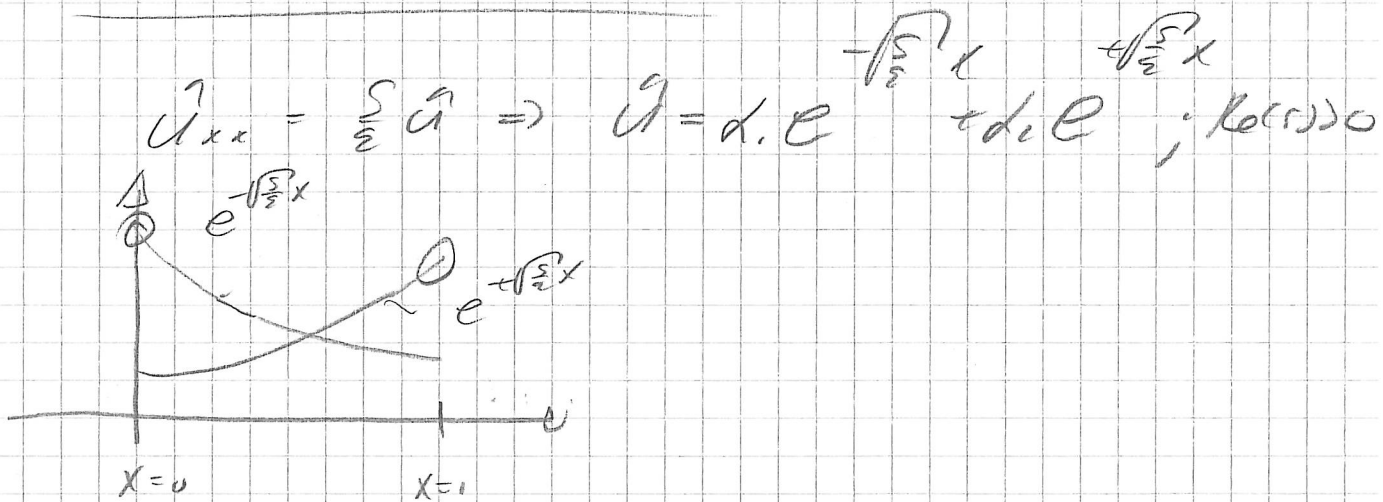 û_xx = s/ε û ⇒ û = α₁ e^{-√(s/ε) x} + α₂ e^{+√(s/ε) x} ; Re(s)>0
e^{-√(s/ε) x}
e^{+√(s/ε) x}
x=0 x=1